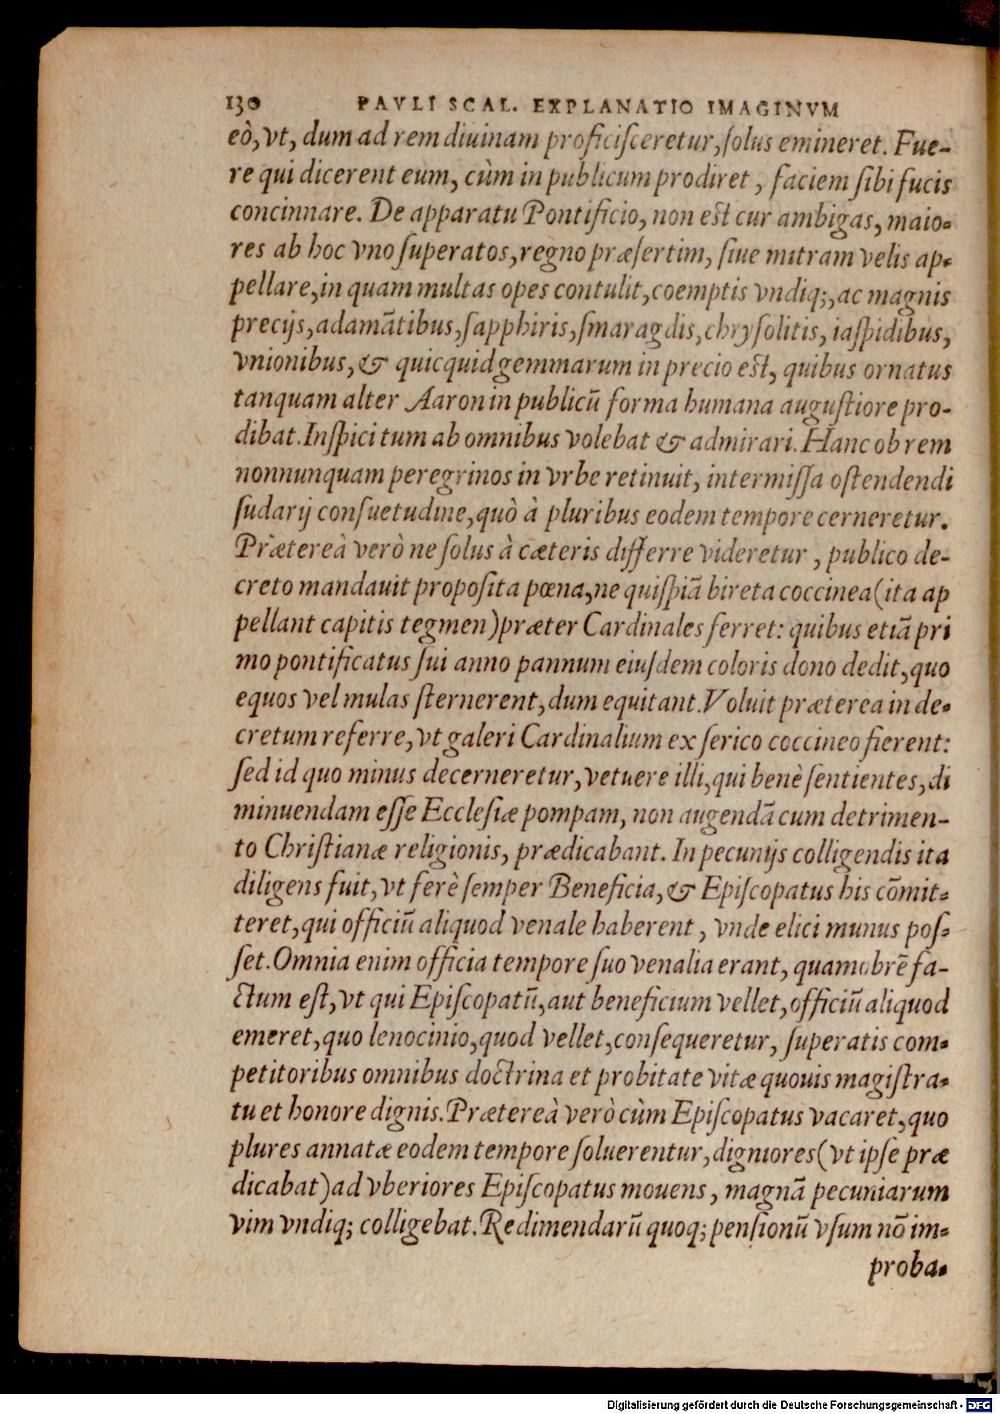 130 PAVLI SCAL. EXPLANATIO IMAGINVM
eò, vt, dum ad rem diuinam proficiſceretur, ſolus emineret. Fue-
re qui dicerent eum, cùm in publicum prodiret, faciem ſibi fucis
concinnare. De apparatu Pontificio, non eſt cur ambigas, maio-
res ab hoc vno ſuperatos, regno præſertim, ſiue mitram velis ap-
pellare, in quam multas opes contulit, coemptis vndiq;, ac magnis
precijs, adamãtibus, ſapphiris, ſmaragdis, chryſolitis, iaſpidibus,
vnionibus, & quicquid gemmarum in precio eſt, quibus ornatus
tanquam alter Aaron in publicũ forma humana auguſtiore pro-
dibat. Inſpici tum ab omnibus volebat & admirari. Hanc ob rem
nonnunquam peregrinos in vrbe retinuit, intermiſſa oſtendendi
ſudarij conſuetudine, quò à pluribus eodem tempore cerneretur.
Prætereà verò ne ſolus à cæteris differre videretur, publico de-
creto mandauit propoſita pœna, ne quiſpiã bireta coccinea (ita ap
pellant capitis tegmen) præter Cardinales ferret: quibus etiã pri
mo pontificatus ſui anno pannum eiuſdem coloris dono dedit, quo
equos vel mulas ſternerent, dum equitant. Voluit præterea in de-
cretum referre, vt galeri Cardinalium ex ſerico coccineo fierent:
ſed id quo minus decerneretur, vetuere illi, qui benè ſentientes, di
minuendam eſſe Eccleſiæ pompam, non augendã cum detrimen-
to Chriſtianæ religionis, prædicabant. In pecunijs colligendis ita
diligens fuit, vt ferè ſemper Beneficia, & Epiſcopatus his cõmit-
teret, qui officiũ aliquod venale haberent, vnde elici munus poſ-
ſet. Omnia enim officia tempore ſuo venalia erant, quamobrẽ fa-
ctum eſt, vt qui Epiſcopatũ, aut beneficium vellet, officiũ aliquod
emeret, quo lenocinio, quod vellet, conſequeretur, ſuperatis com-
petitoribus omnibus doctrina et probitate vitæ quouis magiſtra-
tu et honore dignis. Prætereà verò cùm Epiſcopatus vacaret, quo
plures annatæ eodem tempore ſoluerentur, digniores (vt ipſe præ
dicabat) ad vberiores Epiſcopatus mouens, magnã pecuniarum
vim vndiq; colligebat. Redimendarũ quoq; penſionũ vſum nõ im-
proba-
Digitalisierung gefördert durch die Deutsche Forschungsgemeinschaft - DFG